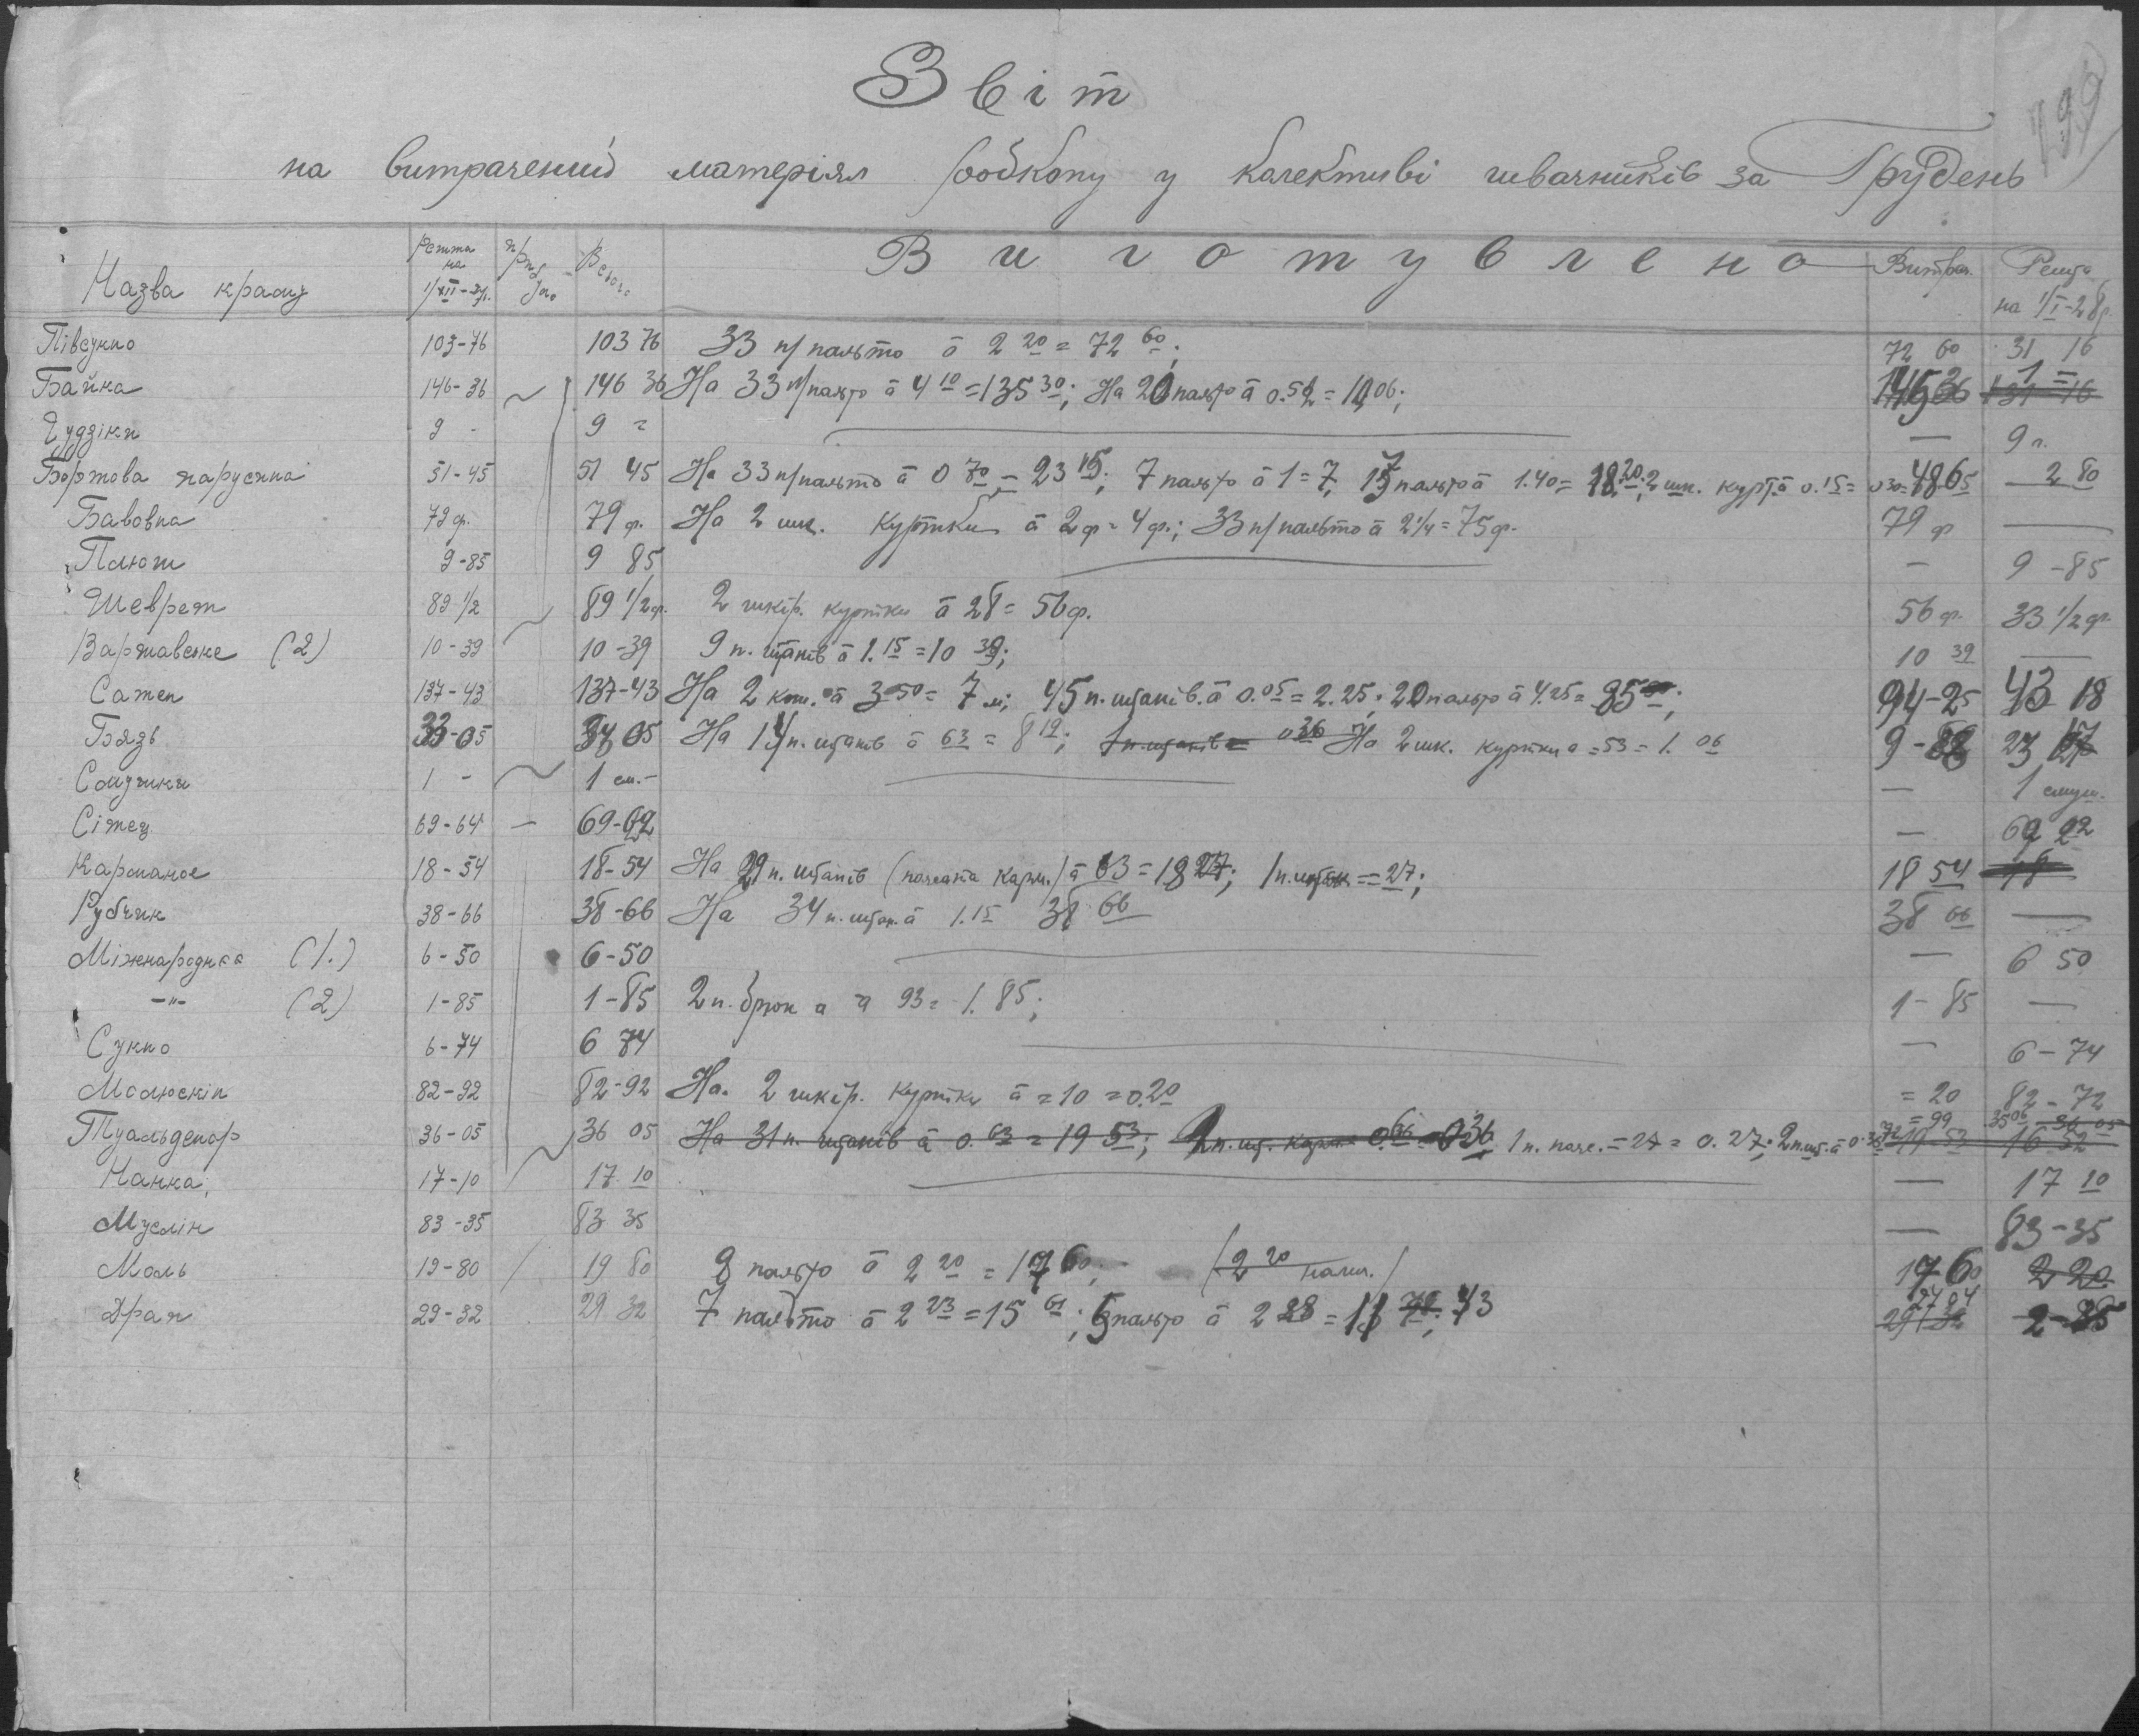 199
Звіт
на витрачений матеріял робкопу у колективі швачників за Грудень
Назва краму Решта на 1/XII-27р. Прибуло Всього Виготувлено Витрач. Решта на 1/I-28р.
Півсукно 103-76 103 76 33 п/пальто à 2 20 = 72 60; 72 60 31 16
Байка 146-36 146 36 На 33 п/пальто à 4 10 = 135 30; На 20 пальто à 0.5 = 1 06; 145 36 1 =
Ґудзіки 9 - 9 = — 9 п.
Бортова парусина 51-45 51 45 На 33 п/пальто à 0 70 = 23 15; 7 пальто à 1 = 7, 13 пальто à 1.40 = 18.20; 2 шк. курт. à 0.15 = 0 30 = 48 65 2 80
Бавовна 79 ф. 79 ф. На 2 шк. куртки à 2 ф = 4 ф.; 33 п/пальто à 2 1/4 = 75 ф. 79 ф —
Плюш 9-85 9 85 — 9-85
Шеврет 89 1/2 89 1/2 ф. 2 шкір. куртки à 28 = 56 ф. 56 ф. 33 1/2 ф.
Варшавське (2) 10-39 10-39 9 п. штанів à 1.15 = 10 39; 10 39 —
Сатен 137-43 137-43 На 2 à 3-50 = 7 м; 45 п. штанів. à 0.05 = 2.25; 20 пальто à 4.25 = 85; 94-25 43 18
Бязь 33-05 05 На 1 п. штанів à 63 = 8 19; 1 п. штанів = 0 36 На 2 шк. куртки à = 53 = 1. 06 9- 23
Смужки 1 - 1 см.- — 1 смуж.
Сітец 69-64 69- — 69 22
Карманое 18-54 18-54 На 29 п. штанів ( карм.) à 63 = 18 27; 1 п. штан = 27; 18 54
Рубчик 38-66 38-66 На 34 п. штан. à 1.15 38 66 38 66 —
Міжнародная (1.) 6-50 6-50 — 6 50
-"- (2) 1-85 1-85 2 п. брюк à 93 = 1.85; 1-85 —
Сукно 6-74 6 74 — 6-74
Молюскін 82-92 82-92 На. 2 шкір. куртки à = 10 = 0.20 = 20 82-72
Туальденор 36-05 36 05 На 31 п. штанів à 0. 63 = 19 53; п. шт. карм. 0 36 1 п. = 27 = 0.27; 2 п. шт. à 0.36 = 99 35 06
Нанка, 17-10 17 10 — 17 10
Муслін 83-35 83 35 — 83-35
Моль 19-80 19 80 8 пальто à 2 20 = 17 60; (2 20 ) 17 60 2 20
Драп 29-32 29 32 7 пальто à 2 23 = 15 61; 5 пальто à 2 28 = 11 43